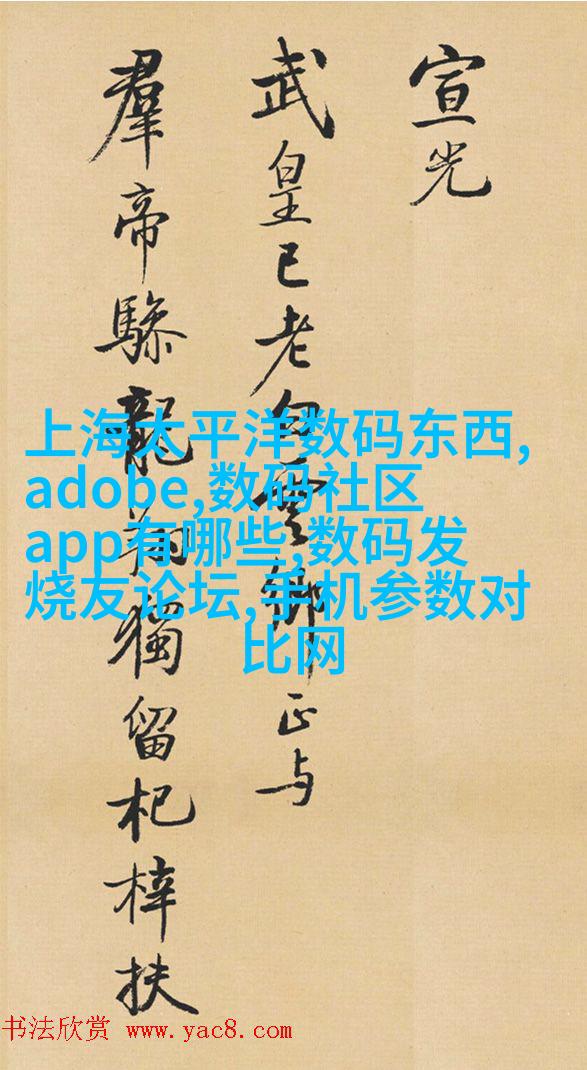 宣光
武皇已老白雲鄉正与
羣帝驂龍翔獨留杞梓扶
上海太平洋数码东西,
adobe,数码社区
app有哪些,数码发
烧友论坛,手机参数对
比网
书法欣赏 www.yac8.com